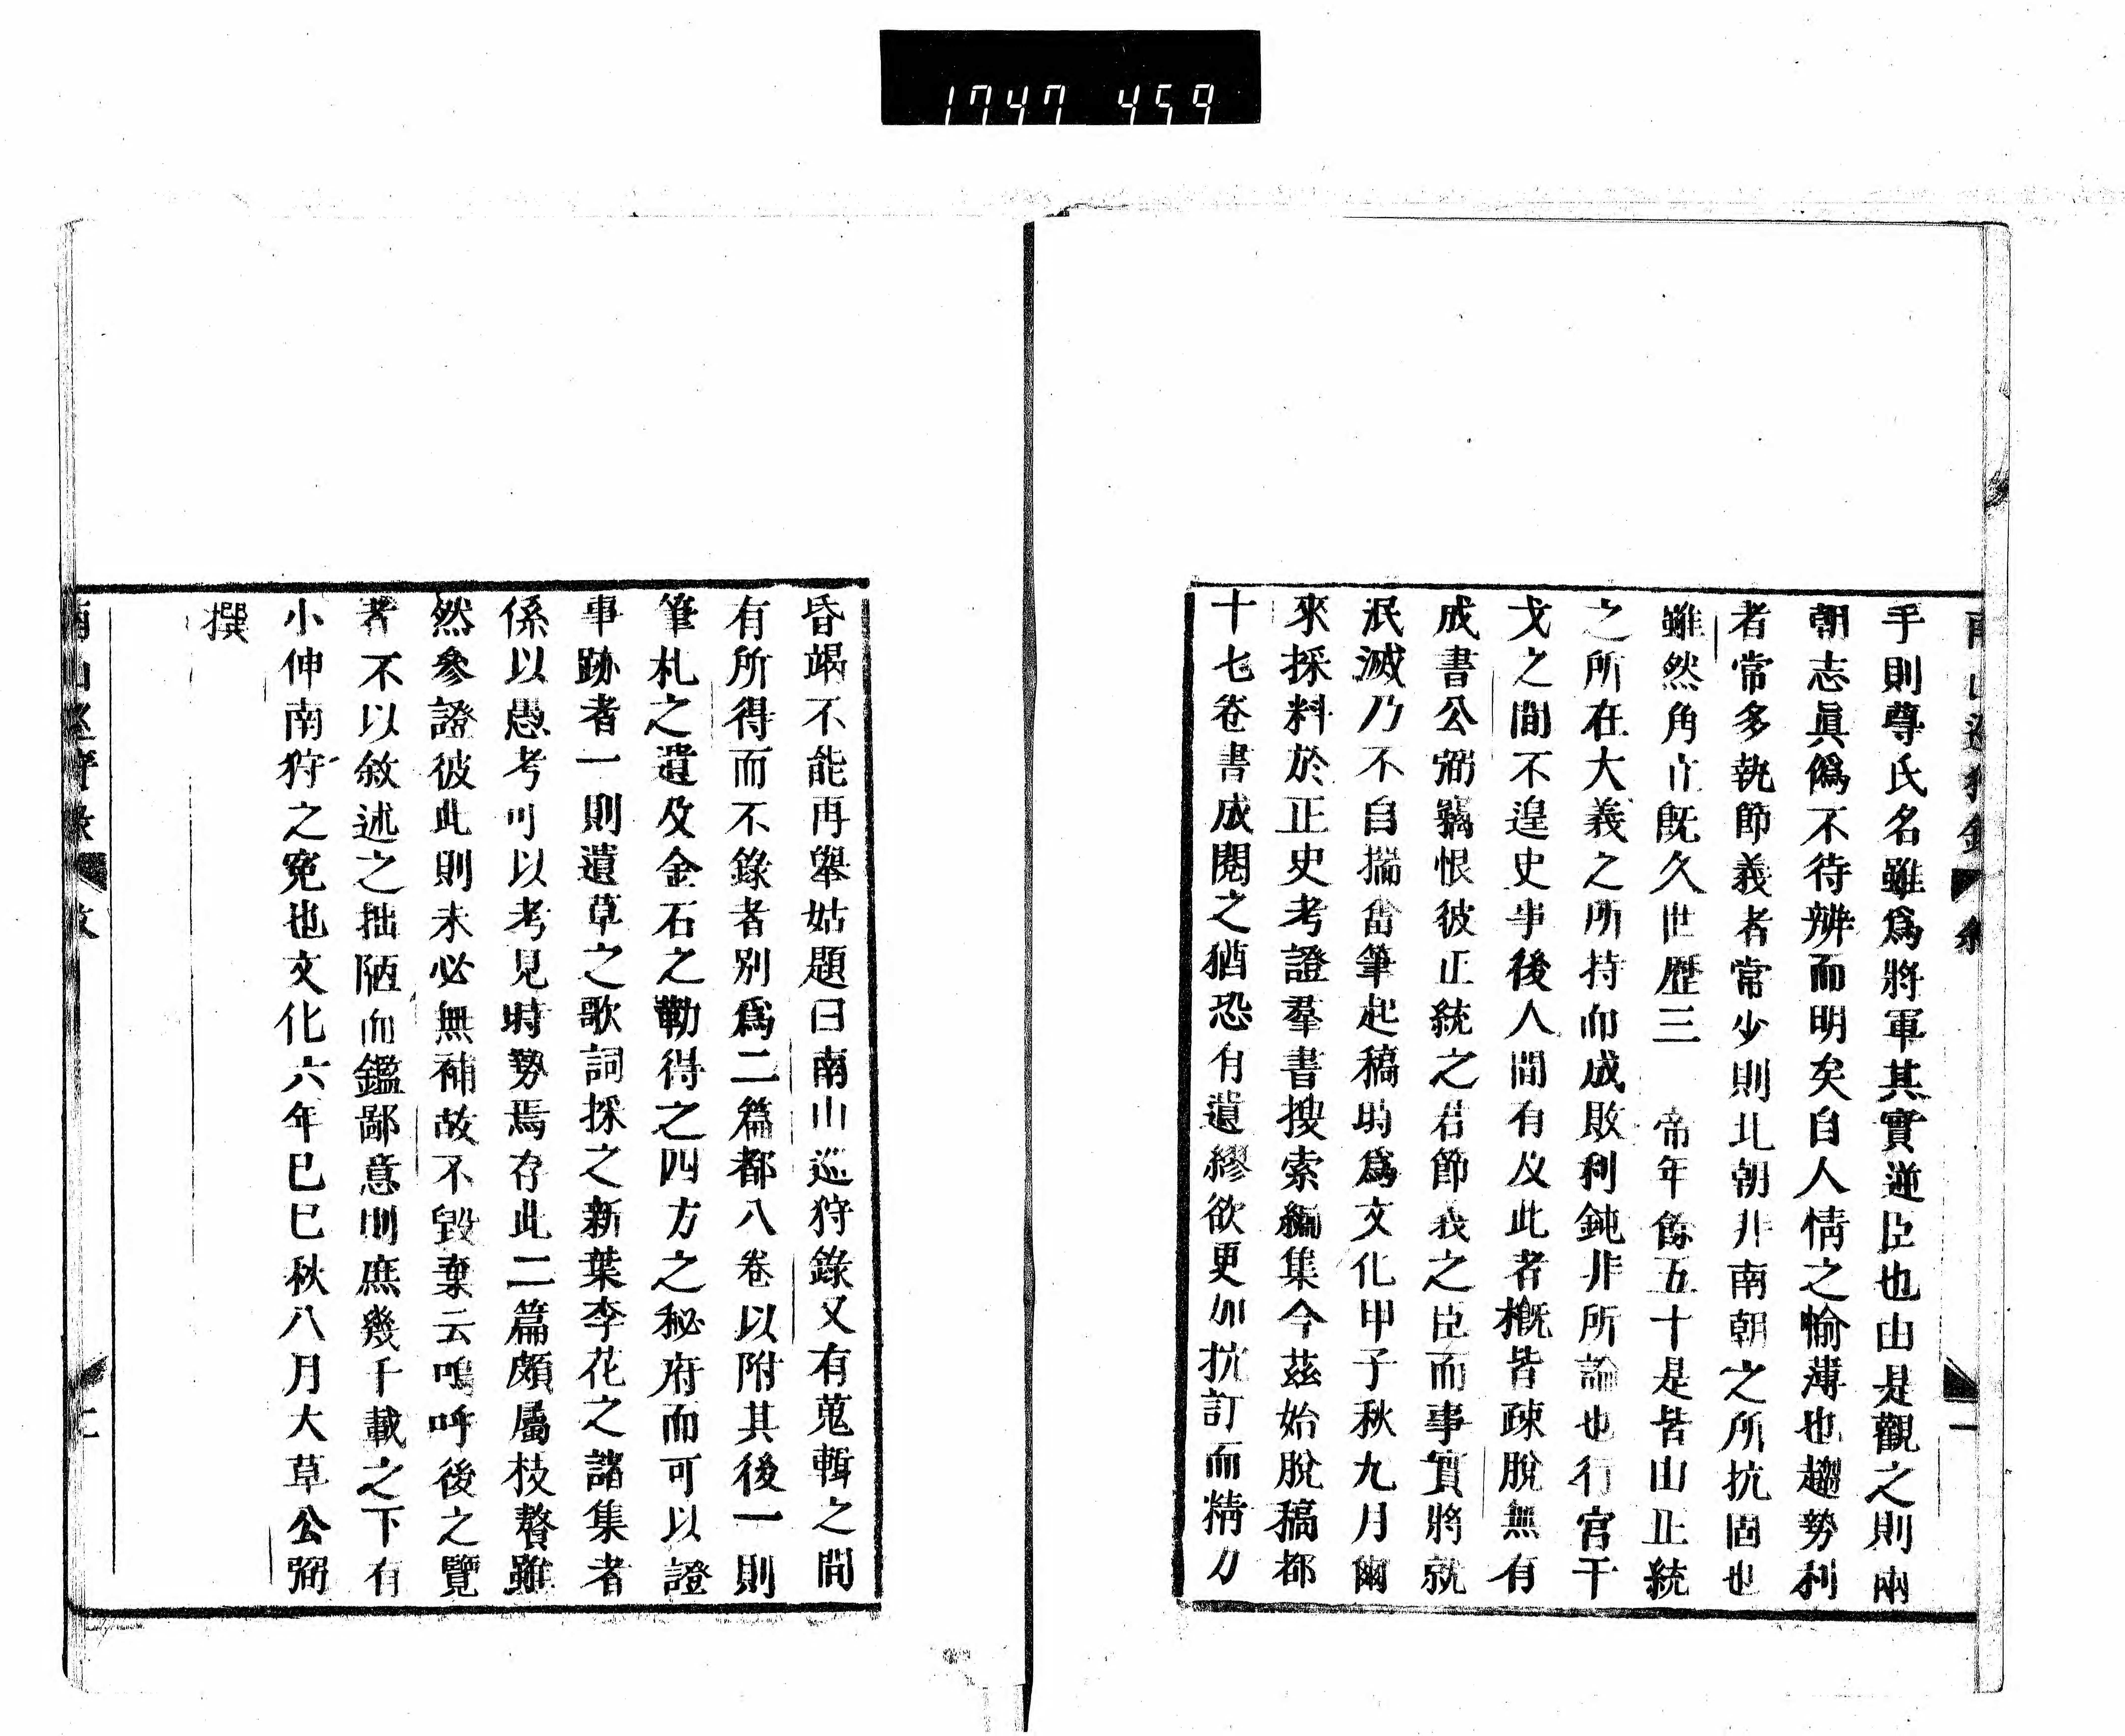 1747 459
手則尊氏名雖爲將軍其實逆臣也由是觀之則兩
朝志眞僞不待辨而明矣自人情之愉薄也趨勢利
者常多執節義者常少則北朝非南朝之所抗固也
雖然角立既久世歷三　帝年餘五十是皆山正統
之所在大義之所持而成敗利鈍非所論也行宮干
戈之間不遑史事後人間有及此者概皆疎脫無有
成書公弼竊恨彼正統之君節義之臣而事實將就
泯滅乃不自揣畜筆起稿時爲文化甲子秋九月爾
來採料於正史考證羣書搜索編集今茲始脫稿都
十七卷書成閱之猶恐有遺繆欲更加抗訂而精力
昏竭不能再舉姑題曰南山巡狩錄又有蒐輯之間
有所得而不錄者別爲二篇都八卷以附其後一則
筆札之遺及金石之勒得之四方之秘府而可以證
事跡者一則遺草之歌詞採之新葉李花之諸集者
係以愚考可以考見時勢焉存此二篇頗屬枝贅雖
然參證彼此則未必無補故不毀棄云嗚呼後之覽
者不以敘述之拙陋而鑑鄙意則庶幾千載之下有
小伸南狩之冤也文化六年已巳秋八月大草公弼
撰
南山巡狩錄　敘　二